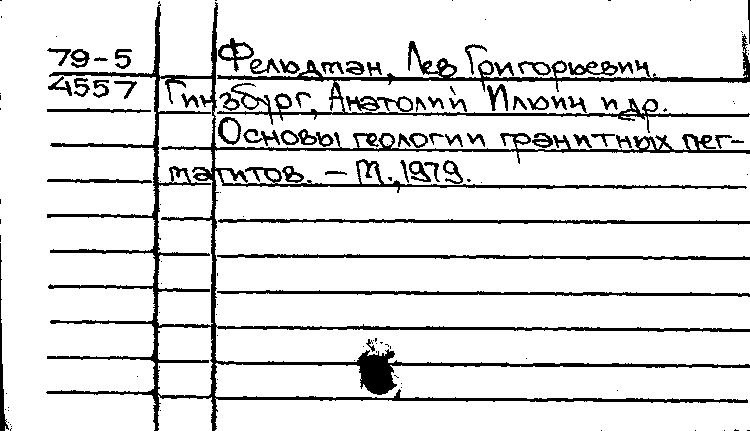 79-5 Фельдман, Лев Григорьевич.
4557 Гинзбург, Анатолий Ильич и др.
Основы геологии гранитных пег-
матитов. – М., 1979.